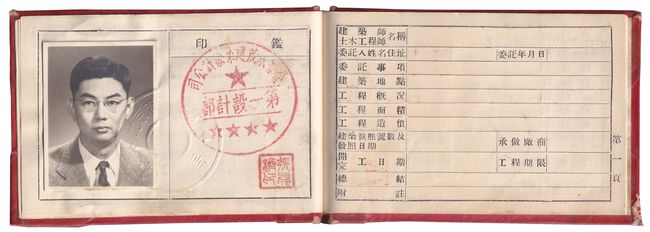 印鑑
第一設計部
建築師
土木工程師 名稱
委託人姓名住址 委託年月日
委託事項
建築地點
工程概况
工程面積
工程造價
建築執照號數及
發照日期 承做廠商
開
完 工日期 工程期限
總結
附註
第一頁